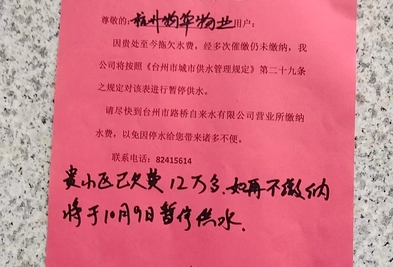 尊敬的:杭州物华物业用户:
因贵处至今拖欠水费,经多次催缴仍未缴纳,我
公司将按照《台州市城市供水管理规定》第二十九条
之规定对该表进行暂停供水。
请尽快到台州市路桥自来水有限公司营业所缴纳
水费,以免因停水给您带来诸多不便。
联系电话:82415614
贵小区已欠费12万多,如再不缴纳
将于10月9日暂停供水.